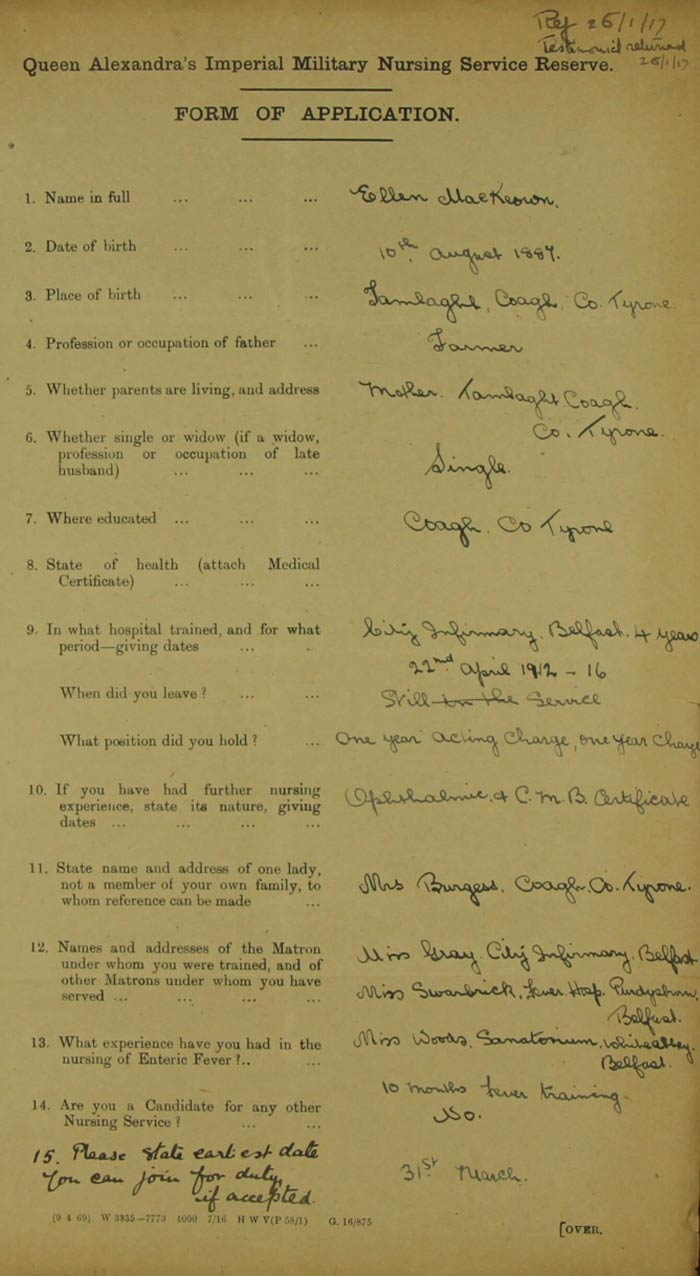 Ref 26/1/17
Testimonial returned
26/1/17
Queen Alexandra's Imperial Military Nursing Service Reserve.
FORM OF APPLICATION.
1. Name in full ... ... ... Ellen MacKeown.
2. Date of birth ... ... ... 10th August 1887.
3. Place of birth ... ... ... Tamlaght, Coagh, Co. Tyrone.
4. Profession or occupation of father ... Farmer
5. Whether parents are living, and address Mother. Tamlaght Coagh.
Co. Tyrone.
6. Whether single or widow (if a widow,
profession or occupation of late
husband) ... ... ... Single.
7. Where educated ... ... ... Coagh. Co Tyrone
8. State of health (attach Medical
Certificate) ... ... ...
9. In what hospital trained, and for what City Infirmary, Belfast. 4 years
period—giving dates ... .. 22nd April 1912 - 16
When did you leave? ... ... Still in the Service
What position did you hold? ... One year acting charge, one year charge
10. If you have had further nursing
experience, state its nature, giving Ophthalmic & C.M.B. Certificate
dates ... ... ... ...
11. State name and address of one lady,
not a member of your own family, to Mrs Burgess, Coagh, Co. Tyrone.
whom reference can be made ...
12. Names and addresses of the Matron Miss Gray. City Infirmary, Belfast
under whom you were trained, and of
other Matrons under whom you have Miss Swanbrick, Fever Hosp. Purdysburn,
served ... ... ... ... Belfast.
13. What experience have you had in the Miss Woods, Sanatorium, Whiteabbey,
nursing of Enteric Fever?.. ... Belfast.
10 months fever training.
14. Are you a Candidate for any other
Nursing Service? ... ... No.
15. Please state earliest date
you can join for duty,
if accepted. 31st March.
(9 4 69) W 3335—7773 4000 7/16 H W V(P 58/1) G. 16/875
[OVER.